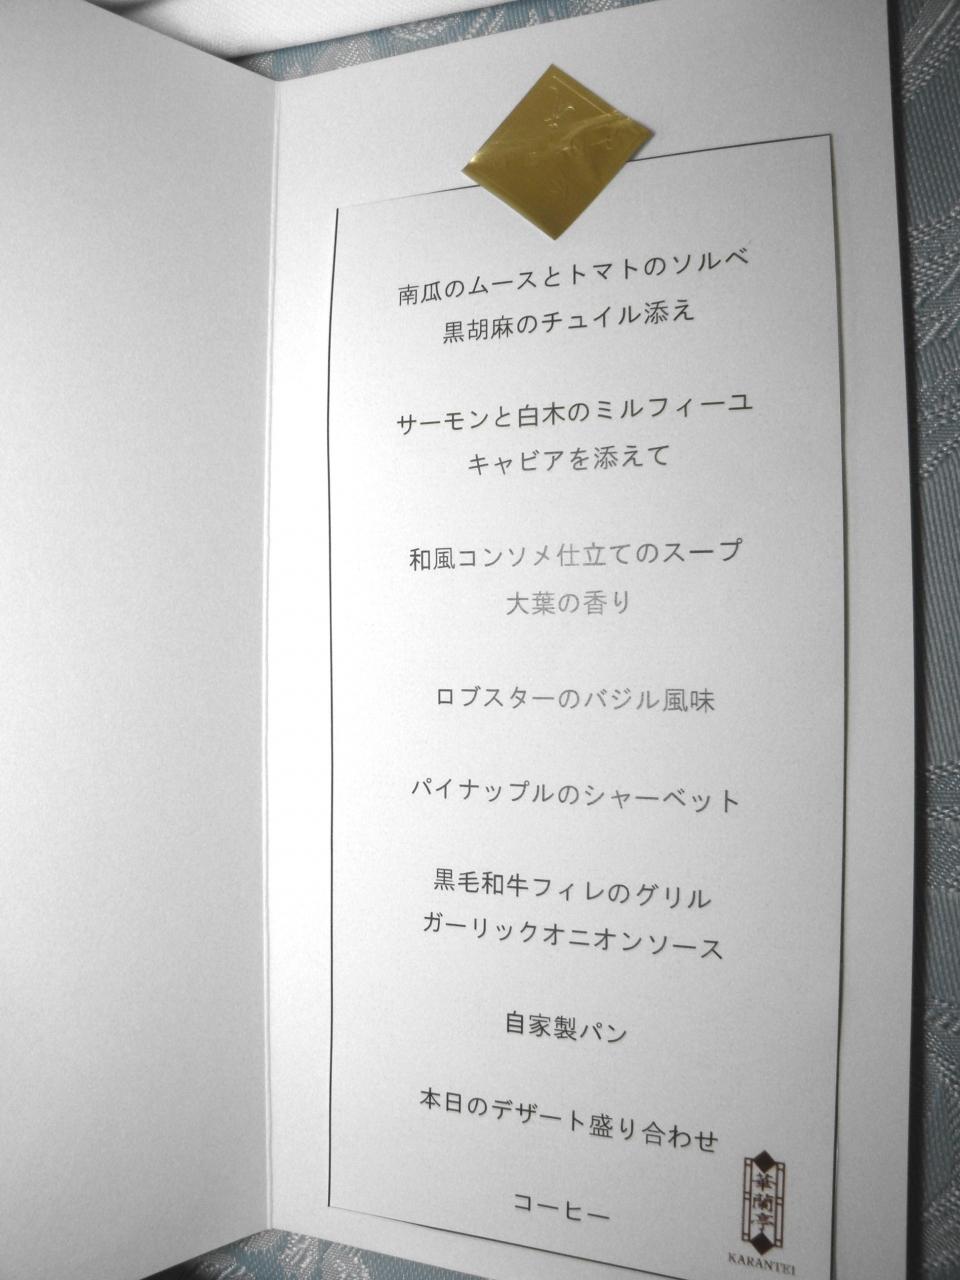 南瓜のムースとトマトのソルベ
黒胡麻のチュイル添え
サーモンと白木のミルフィーユ
キャビアを添えて
和風コンソメ仕立てのスープ
大葉の香り
ロブスターのバジル風味
パイナップルのシャーベット
黒毛和牛フィレのグリル
ガーリックオニオンソース
自家製パン
本日のデザート盛り合わせ
コーヒー
華蘭亭
KARANTEI